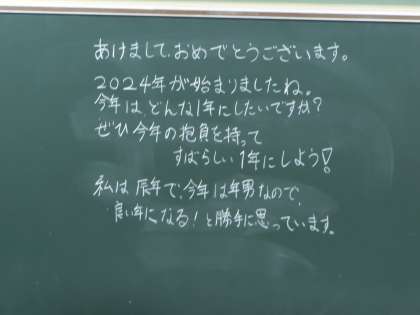 あけまして、おめでとうございます。
2024年が始まりましたね。
今年は、どんな1年にしたいですか？
ぜひ今年の抱負を持って
すばらしい1年にしよう！
私は辰年で、今年は年男なので、
良い年になる！と勝手に思っています。